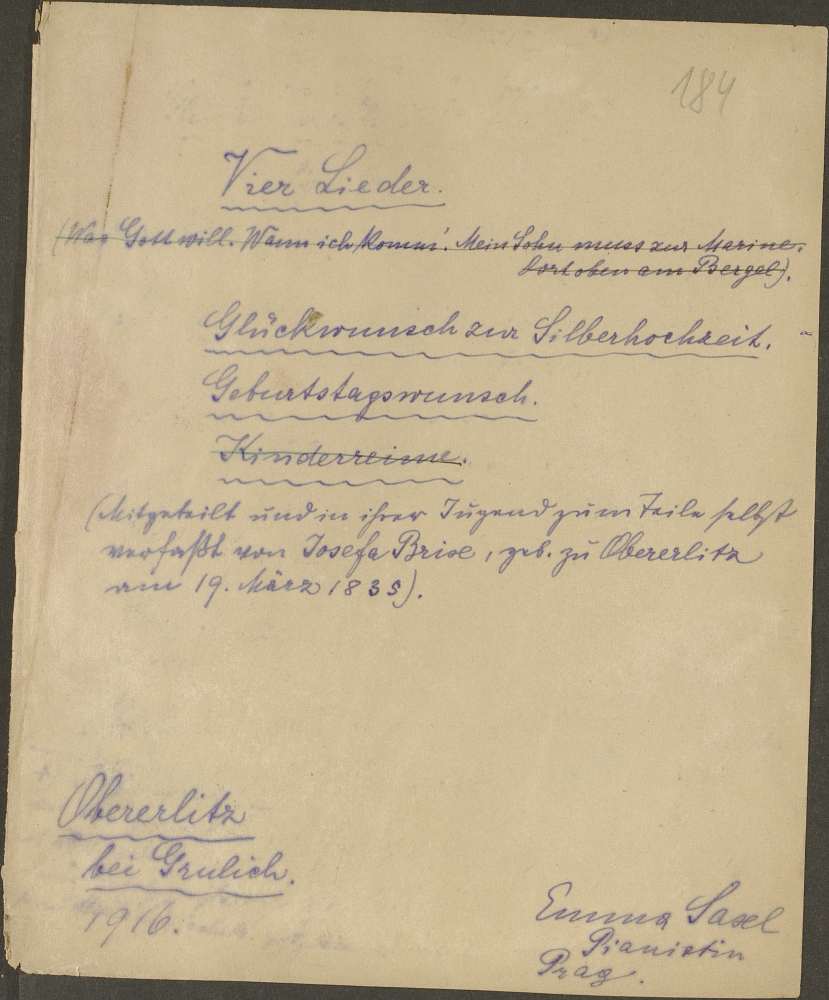 184
Vier Lieder.
(Was Gott will. Wann ich komm'. Mein Sohn muss zur Marine.
Dort oben am Bergel).
Glückwunsch zur Silberhochzeit.
Geburtstagswunsch.
Kinderreime.
(Mitgeteilt und in ihrer Jugend zum Teile selbst
verfaßt von Josefa Brise, geb. zu Obererlitz
am 19. März 1835).
Obererlitz
bei Grulich.
1916.
Emma Saxel
Pianistin
Prag.